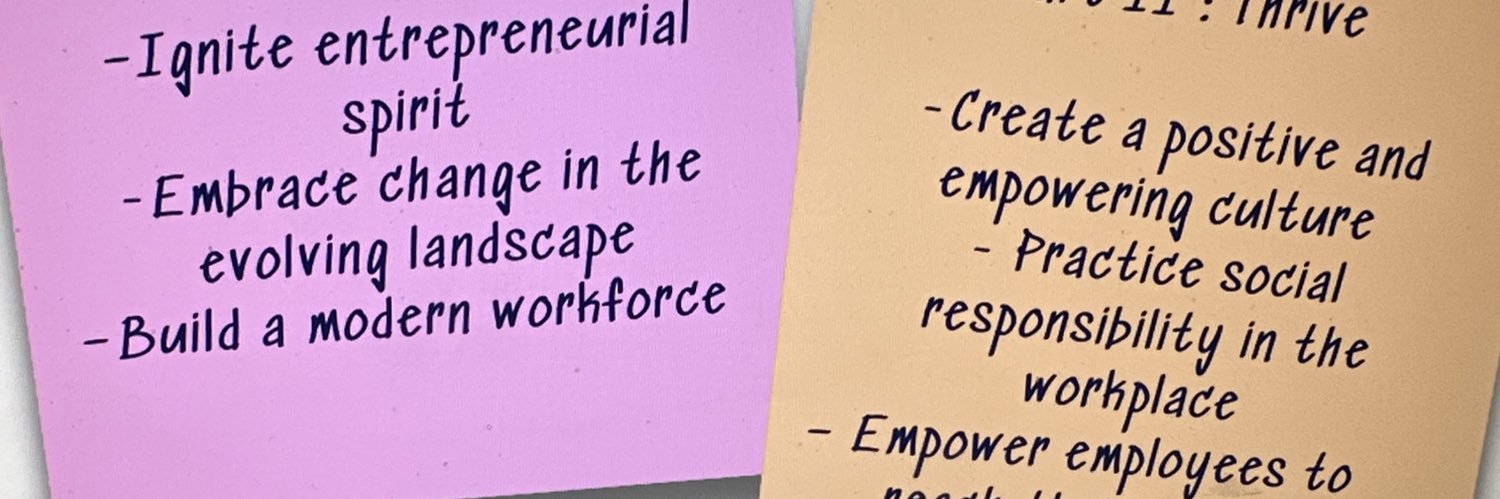 -Ignite entrepreneurial
spirit
-Embrace change in the
evolving landscape
-Build a modern workforce
: Thrive
-Create a positive and
empowering culture
- Practice social
responsibility in the
workplace
- Empower employees to